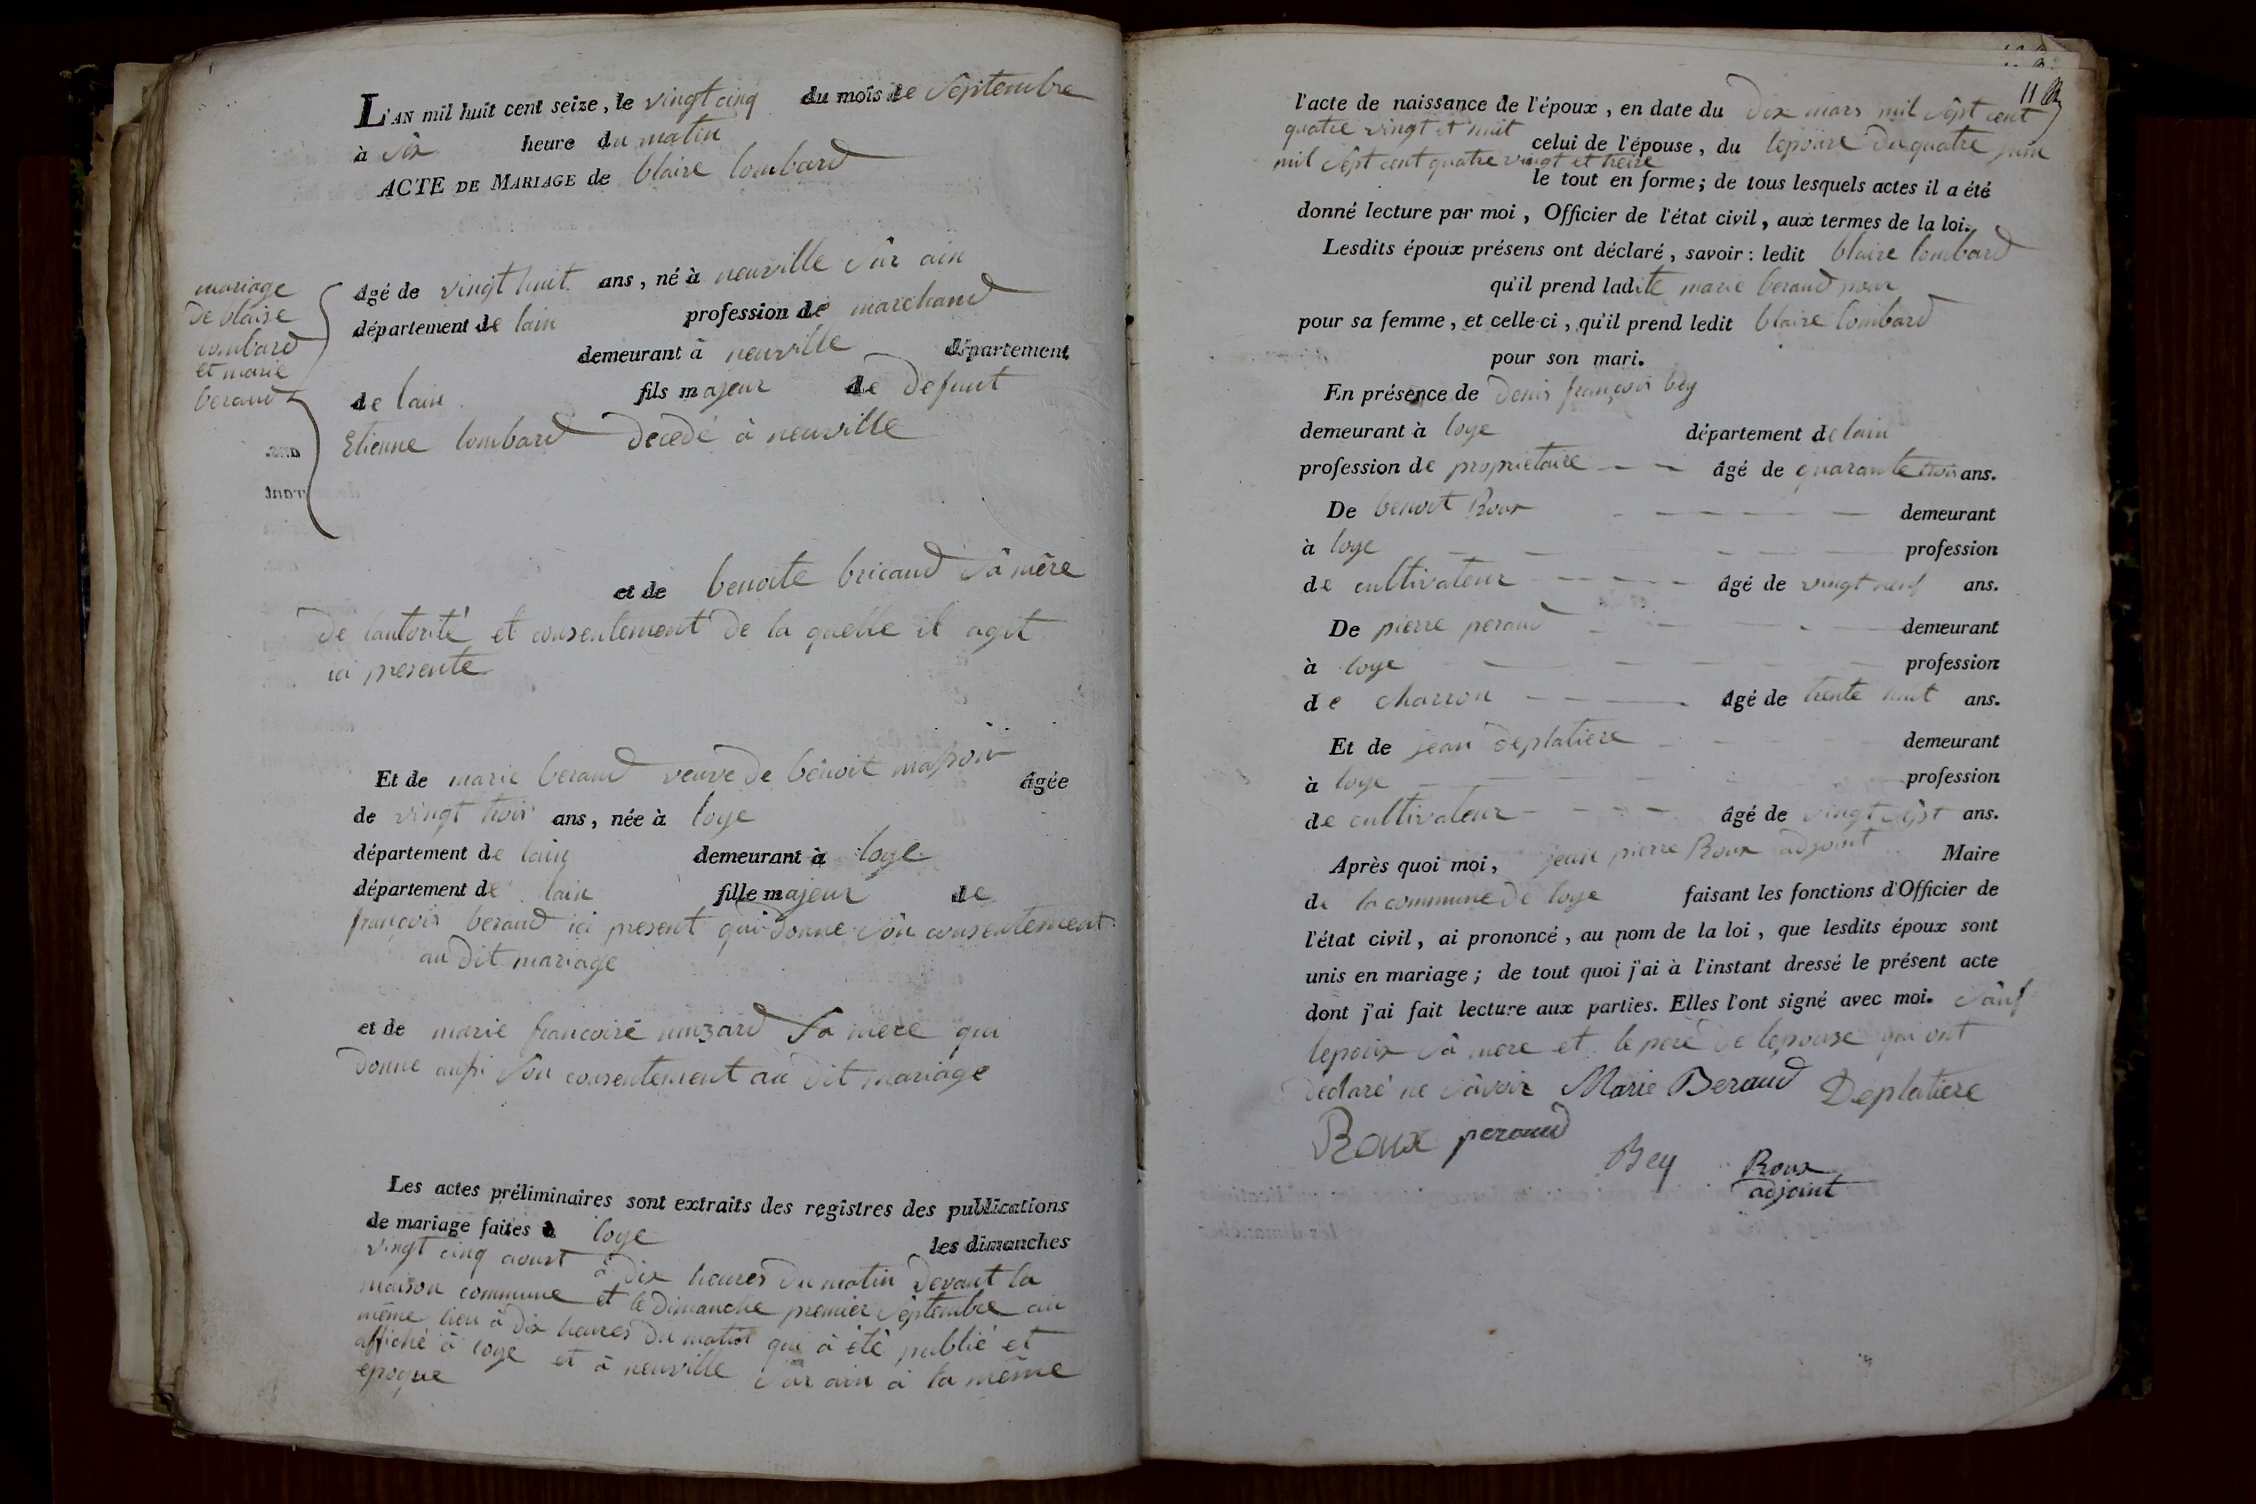 L'AN mil huit cent seize, le vingt cinq du mois de Septembre
à Six heure du matin
ACTE DE MARIAGE de blaise lombard
mariage
de blaise
lombard
et marie
beraud
âgé de vingt huit ans, né à neuville Sur ain
département de lain profession de marchand
demeurant à neuville département
de lain fils majeur de defunt
Etienne lombard decedé à neuville
et de benoite bricaud Sa mère
de lautorité et consentement de la quelle il agit
ici presente
Et de marie beraud veuve de benoit âgée
de vingt trois ans, née à loye
département de lain demeurant à loye
département de lain fille majeur de
françois beraud ici present qui donne Son consentement
au dit mariage
et de marie francoise Sa mere qui
donne aussi Son consentement au dit mariage
Les actes préliminaires sont extraits des registres des publications
de mariage faites à loye les dimanches
vingt cinq aoust à dix heures du matin devant la
maison commune et le dimanche premier Septembre au
même lieu à dix heures du matin qui à été publié et
affiché à loye et à neuville Sur ain à la même
epoque
11
l'acte de naissance de l'époux, en date du dix mars mil Sept cent
quatre vingt et huit celui de l'épouse, du lepouse du quatre juin
mil Sept cent quatre vingt et treize
le tout en forme; de tous lesquels actes il a été
donné lecture par moi, Officier de l'état civil, aux termes de la loi.
Lesdits époux présens ont déclaré, savoir: ledit blaise lombard
qu'il prend ladite marie beraud pour
pour sa femme, et celle-ci, qu'il prend ledit blaise lombard
pour son mari.
En présence de denis françois bey
demeurant à loye département de lain
profession de proprietaire âgé de quarante trois ans.
De benoit Roux demeurant
à loye profession
de cultivateur âgé de vingt neuf ans.
De pierre peraud demeurant
à loye profession
de charron âgé de trente huit ans.
Et de jean deplatiere demeurant
à loye profession
de cultivateur âgé de vingt Sept ans.
Après quoi moi, jean pierre Roux adjoint Maire
de la commune de loye faisant les fonctions d'Officier de
l'état civil, ai prononcé, au nom de la loi, que lesdits époux sont
unis en mariage; de tout quoi j'ai à l'instant dressé le présent acte
dont j'ai fait lecture aux parties. Elles l'ont signé avec moi. Sauf
lepoux Sa mere et le pere de lepouse qui ont
declaré ne Savoir Marie Beraud Deplatiere
Roux peraud
Bey Roux
adjoint